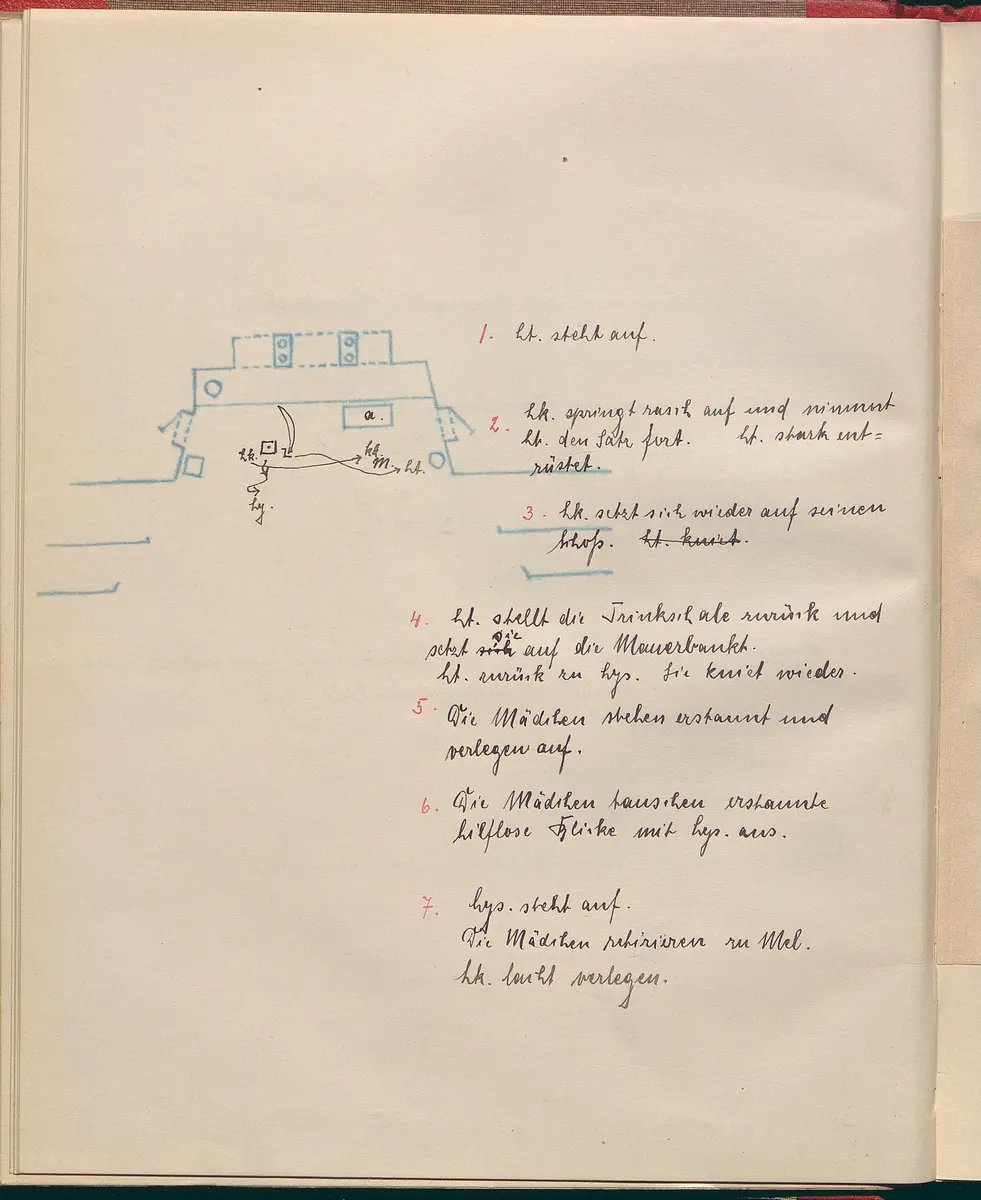 1. ht. steht auf.
2. hk. springt rasch auf und nimmt
ht. den Satz fort. ht. stark ent=
rüstet.
a.
hk.
hk.
M.
ht.
hy.
3. hk. setzt sich wieder auf seinen
Schoß. ht. kniet.
4. ht. stellt die Trinkschale zurück und
setzt sich sie auf die Mauerbankt.
ht. zurück zu hys. Sie kniet wieder.
5. Die Mädchen stehen erstaunt und
verlegen auf.
6. Die Mädchen tauschen erstaunte
hilflose Blicke mit hys. aus.
7. hys. steht auf.
Die Mädchen retirieren zu Mel.
hk. lacht verlegen.